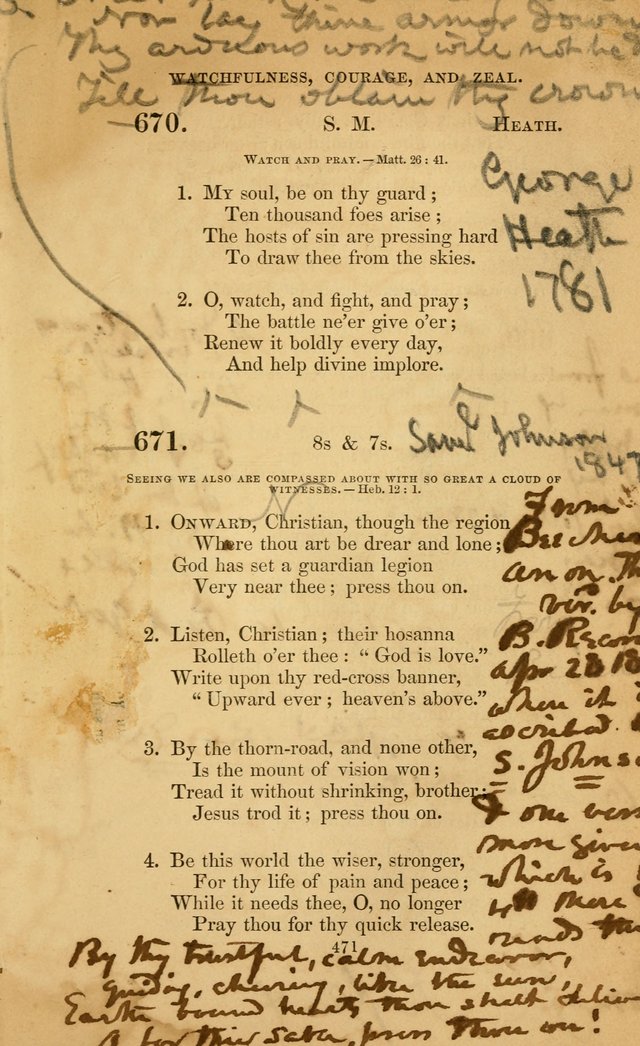 Nor lay thine armor down
Thy arduous work will not be d
Till thou obtain thy crown
WATCHFULNESS, COURAGE, AND ZEAL.
670. S. M. HEATH.
WATCH AND PRAY.—Matt. 26 : 41.
George
Heath
1781
1. MY soul, be on thy guard ;
Ten thousand foes arise ;
The hosts of sin are pressing hard
To draw thee from the skies.
2. O, watch, and fight, and pray ;
The battle ne'er give o'er ;
Renew it boldly every day,
And help divine implore.
671. 8s & 7s. Saml Johnson
1847
SEEING WE ALSO ARE COMPASSED ABOUT WITH SO GREAT A CLOUD OF
WITNESSES.—Heb. 12 : 1.
1. ONWARD, Christian, though the region
Where thou art be drear and lone ;
God has set a guardian legion
Very near thee ; press thou on.
2. Listen, Christian ; their hosanna
Rolleth o'er thee : “ God is love.”
Write upon thy red-cross banner,
“ Upward ever ; heaven's above.”
3. By the thorn-road, and none other,
Is the mount of vision won ;
Tread it without shrinking, brother ;
Jesus trod it ; press thou on.
4. Be this world the wiser, stronger,
For thy life of pain and peace ;
While it needs thee, O, no longer
Pray thou for thy quick release.
From
Beecher
anon. Th
by
B.
apr 28 18
where it i
S. Johnso
one vers
more give
which is
there
reads thu
471
By thy trustful, calm endeavor,
guiding, cheering, like the sun,
Earth bound hearts thou shalt deliv
for their sake, press thou on!